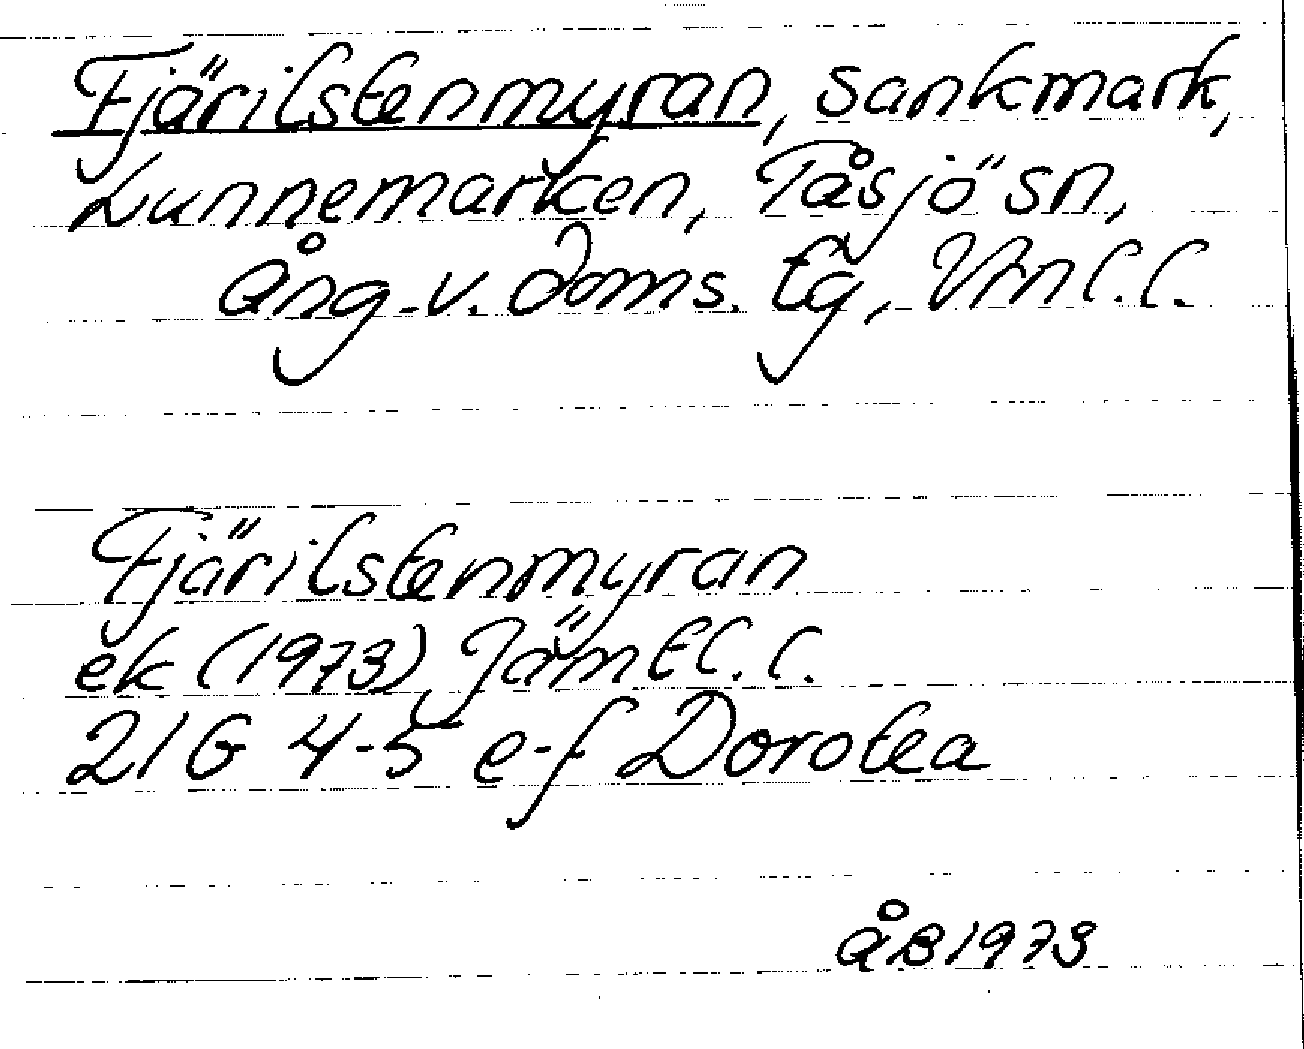 Fjärilstenmyran, sankmark,
Lunnemarken, Tåsjö sn,
Ång. v. doms. tg, Vrnl. l.
Fjärilstenmyran
ek (1973), Jämtl. l.
21G 4-5 e-f Dorotea
ÅB 1973